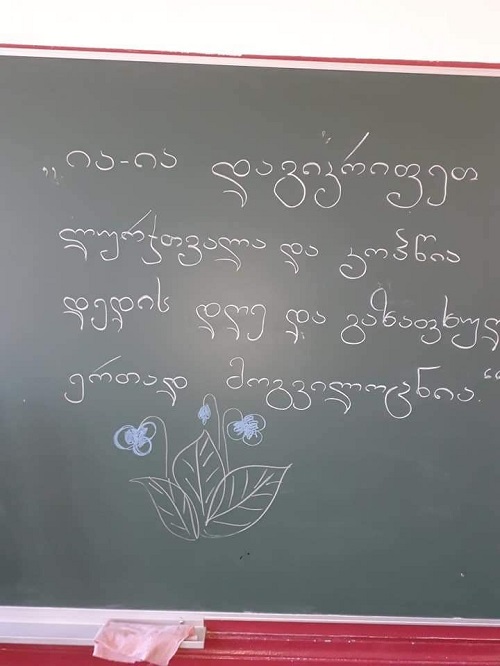 „ია-ია დაგიკრიფეთ
ლურჯთვალა და კოჰწია
დედის დღე და გაზაფხულ
ერთად მოგვილოცნია.“